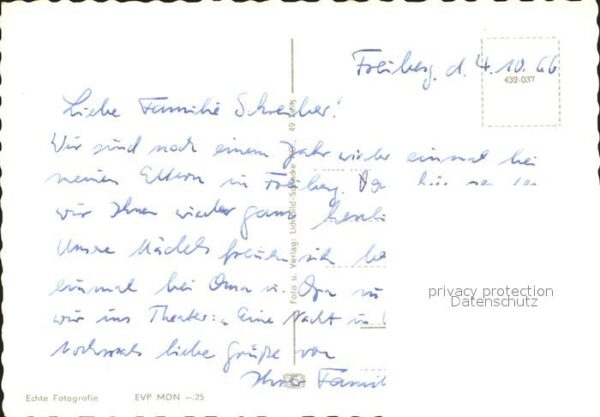 Freiberg, d. 4.10.66
432-037
Liebe Familie Schreiber!
Wir sind nach einem Jahr wieder einmal bei
meinen Eltern in Freiberg.
wir Ihnen wieder ganz herzli
Unsere Mädels freuen sich
einmal bei Oma u. Opa zu
wir ins Theater: „Eine Nacht in
Nochmals liebe Grüße von
Ihrer Famil
Foto u. Verlag: Lichtbild-
privacy protection
Datenschutz
Echte Fotografie EVP MON —.25